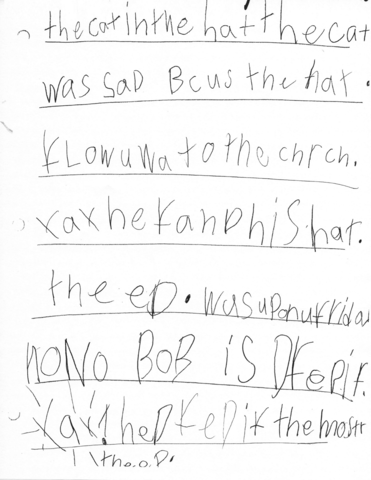 thecatinthe hatthecat
was saD Bcus the hat.
FLowuwatothechrch.
xaxheFanDhiS.hat.
the eD. wasuponufrida
noNo BoB iS
xax!heD the
\the.o.D.